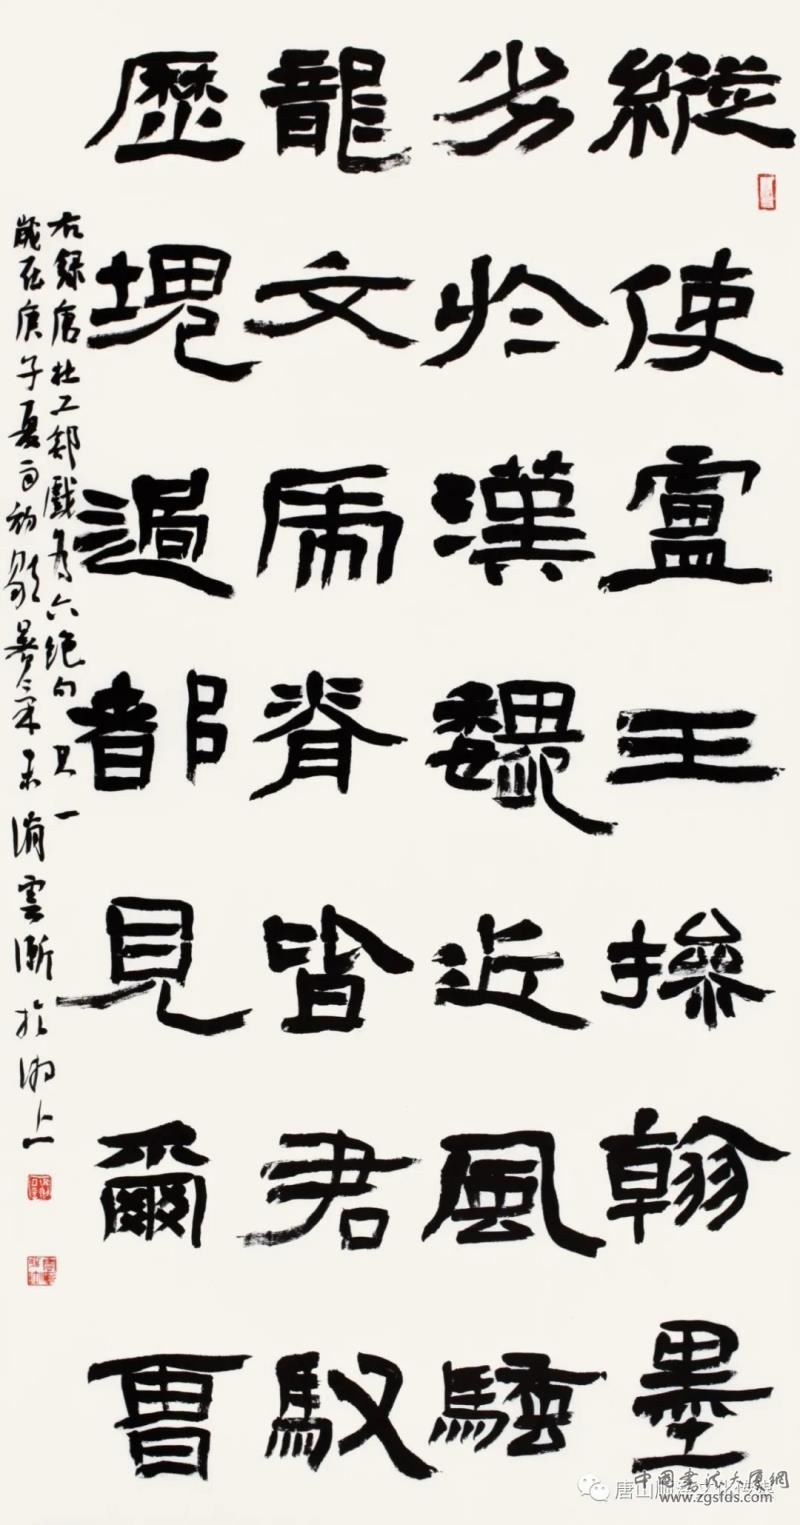 縱使盧王操翰墨
劣於漢魏近風騷
龍文虎脊皆君馭
歷塊過都見爾曹
右錄唐杜工部戲為六絕句其一
歲在庚子夏雨初歇暑氣未消雲漸於湖上
唐山
中國書法大廈網
www.zgsfds.com